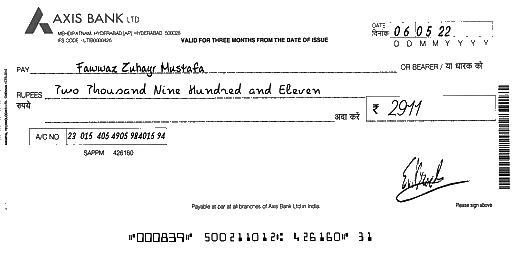 AXIS BANK LTD
MEHDIPATNAM, HYDERABAD [AP] - HYDERABAD 500028
IFS CODE - UTIB0000426
VALID FOR THREE MONTHS FROM THE DATE OF ISSUE
DATE
दिनांक 06 05 22
D D M M Y Y Y Y
PAY Fawwaz Zuhayr Mustafa OR BEARER / या धारक को
RUPEES Two Thousand Nine Hundred and Eleven
रुपये अदा करें ₹ 2911
A/C NO 23 015 405 4905 984015 94
SAPPM 426160
Payable at par at all branches of Axis Bank Ltd in India.
Please sign above
⑈000839⑈ 500211012⑆ 426160⑈ 31